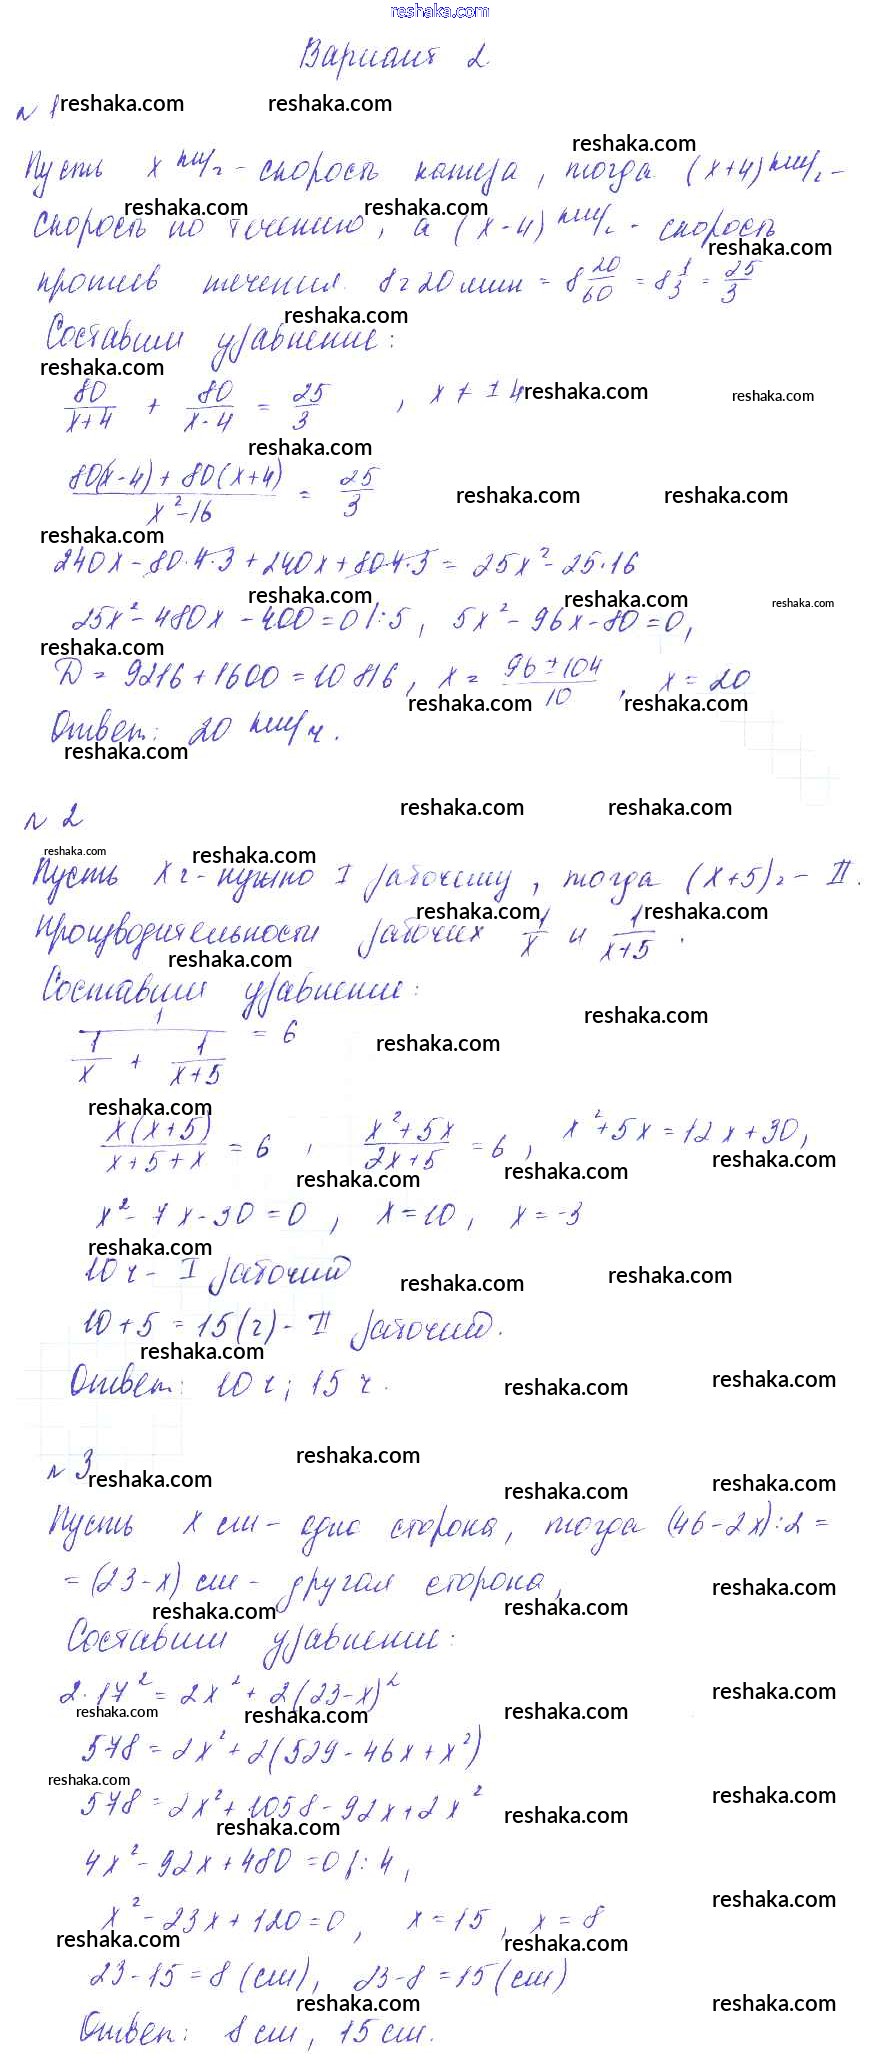 reshaka.com
Вариант 2
№ 1
Пусть x км/ч - скорость катера, тогда (x+4) км/ч -
скорость по течению, а (x-4) км/ч - скорость
против течения. 8ч 20мин = 8 20/60 = 8 1/3 = 25/3
Составим уравнение:
80/(x+4) + 80/(x-4) = 25/3 , x ≠ ±4
(80(x-4) + 80(x+4))/(x²-16) = 25/3
240x - 80·4·3 + 240x + 80·4·3 = 25x² - 25·16
25x² - 480x - 400 = 0 |:5, 5x² - 96x - 80 = 0,
D = 9216 + 1600 = 10816, x = (96 ± 104)/10, x = 20
Ответ: 20 км/ч.
№ 2
Пусть x ч - нужно I рабочему, тогда (x+5) ч - II.
Производительности рабочих 1/x и 1/(x+5).
Составим уравнение:
1/(1/x + 1/(x+5)) = 6
x(x+5)/(x+5+x) = 6, (x²+5x)/(2x+5) = 6, x²+5x = 12x+30,
x² - 7x - 30 = 0, x = 10, x = -3
10 ч - I рабочий
10 + 5 = 15 (ч) - II рабочий.
Ответ: 10 ч; 15 ч.
№ 3
Пусть x см - одна сторона, тогда (46-2x):2 =
= (23-x) см - другая сторона,
Составим уравнение:
2·17² = 2x² + 2(23-x)²
578 = 2x² + 2(529 - 46x + x²)
578 = 2x² + 1058 - 92x + 2x²
4x² - 92x + 480 = 0 |:4,
x² - 23x + 120 = 0, x = 15, x = 8
23 - 15 = 8 (см), 23 - 8 = 15 (см)
Ответ: 8 см, 15 см.